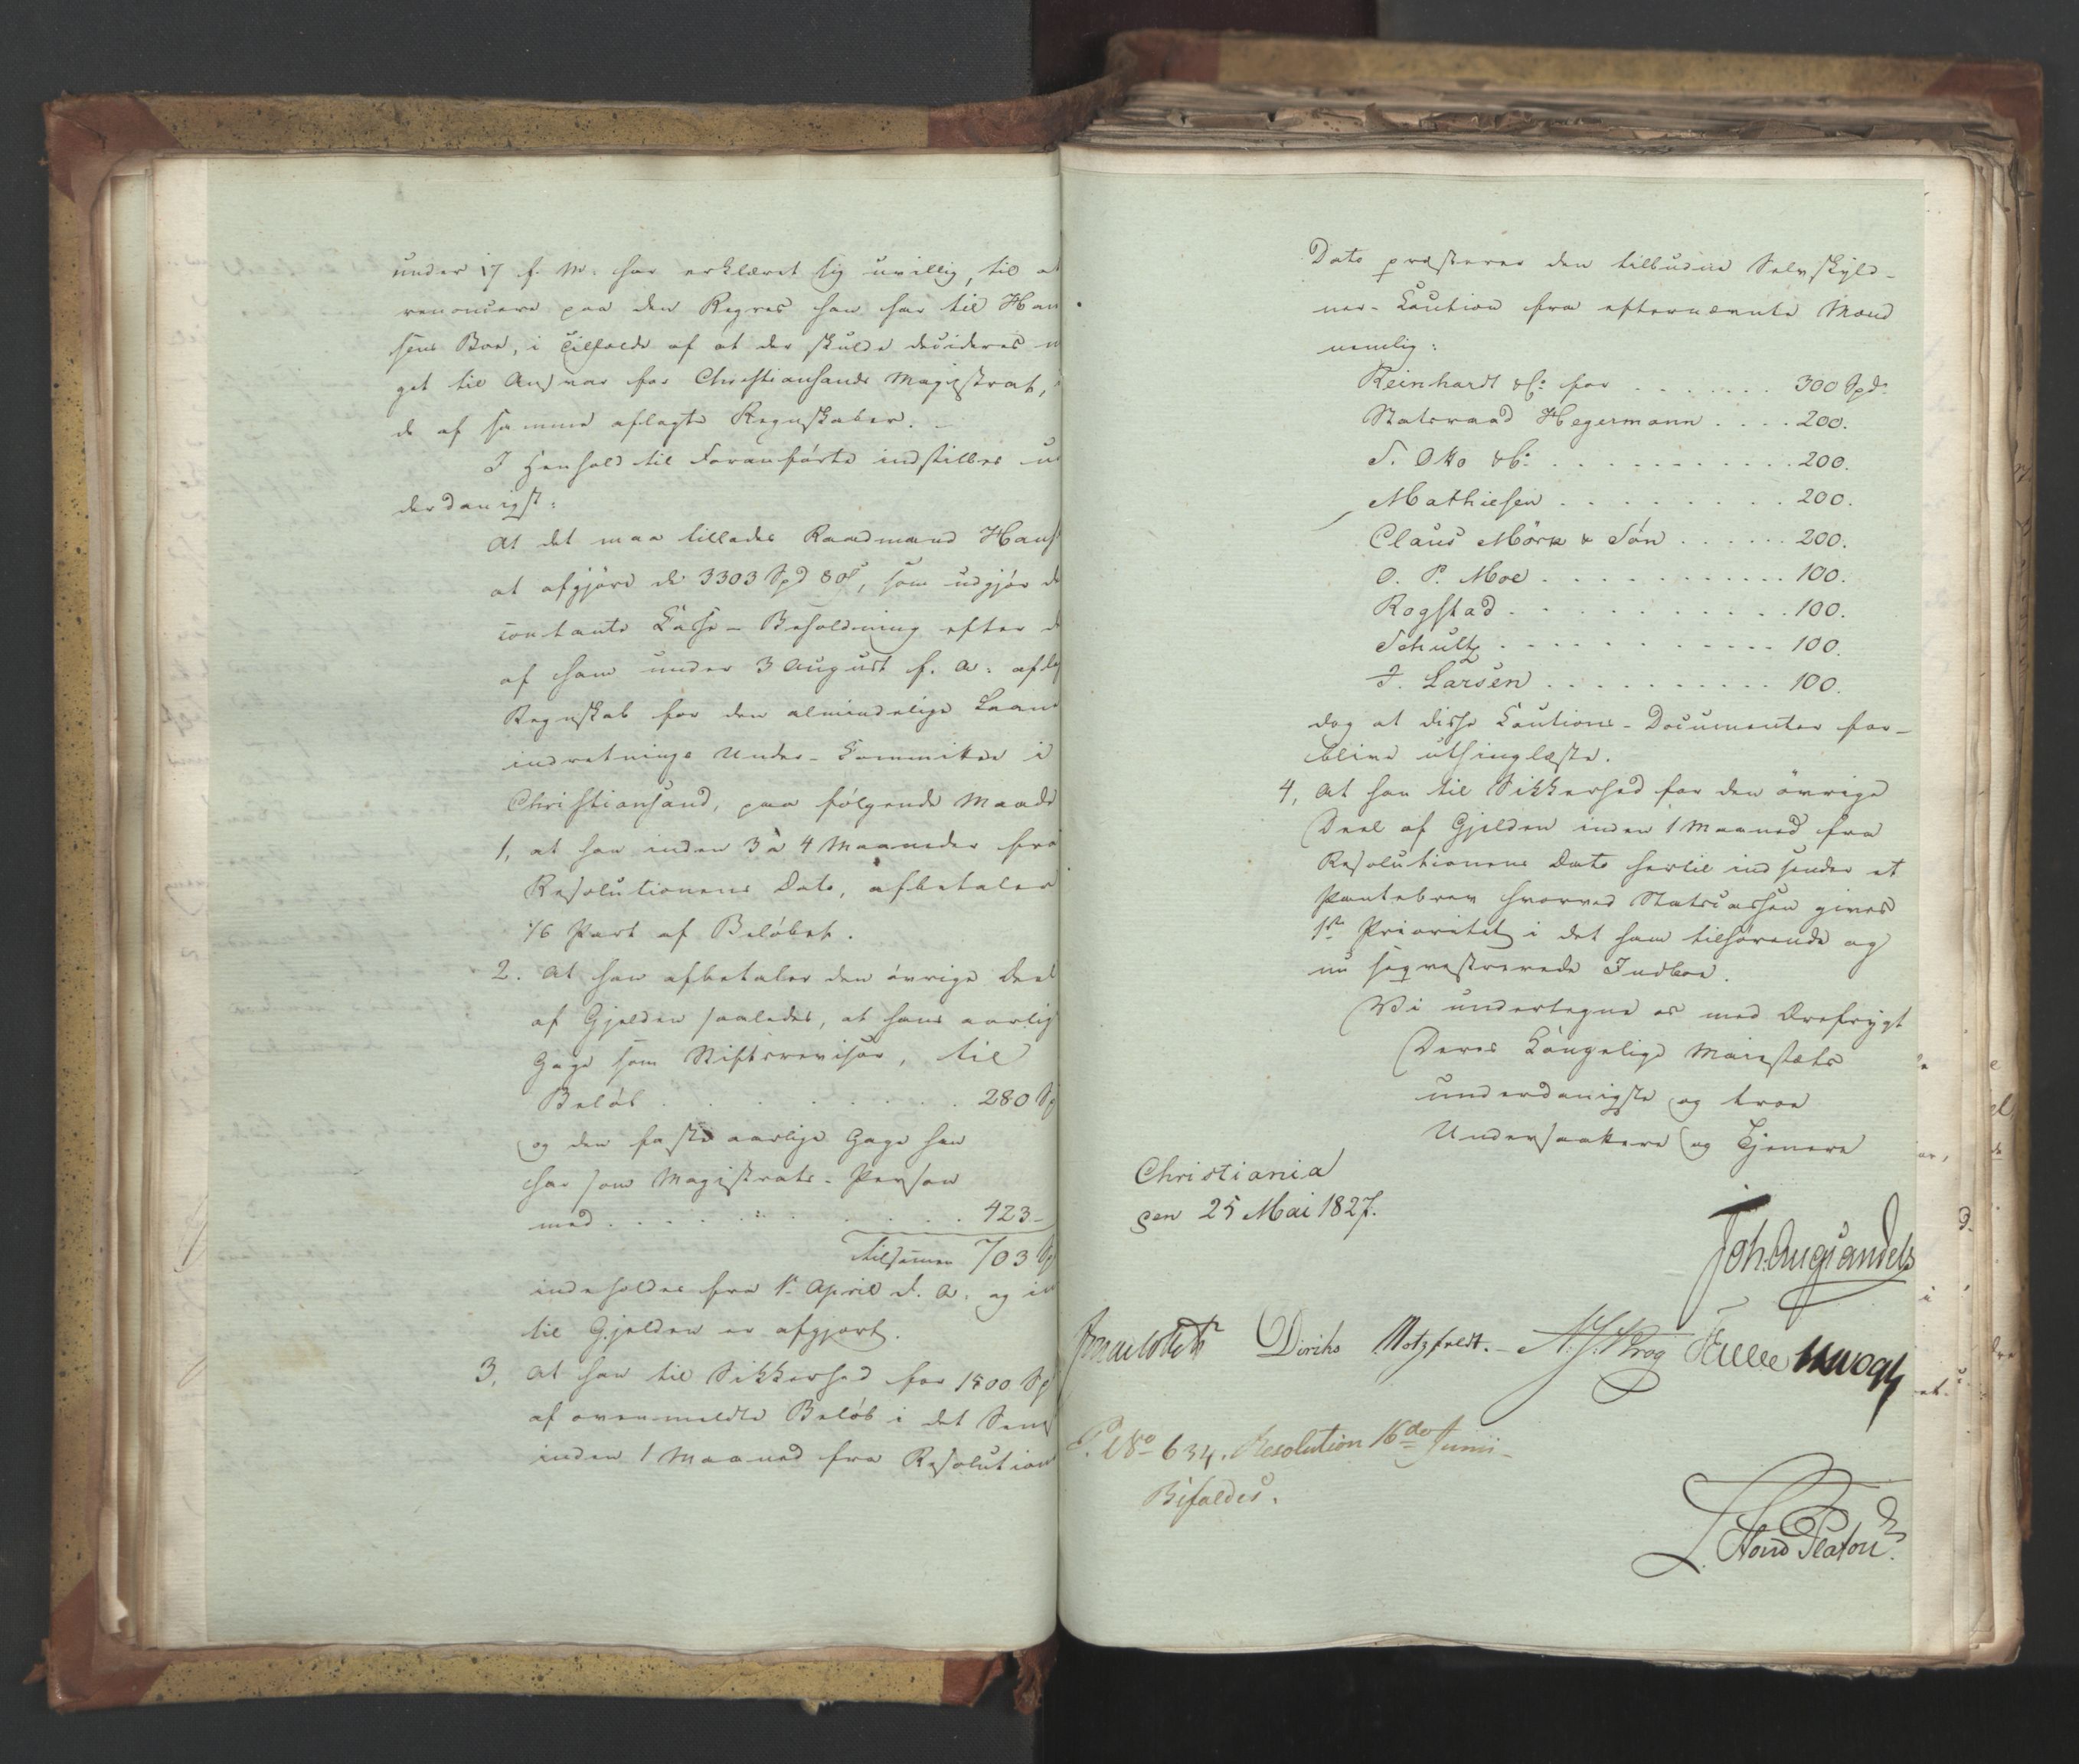 under 17 f. M. har erklæret sig uvillig, til at
renoncere paa den Regres han har til Han
sens Boe, i Tilfælde af at der skulde decideres n
get til Ansvar for Christiansands Magistrat,
de af samme aflagte Regnskaber.
I Henhold til Foranførte indstilles un
derdanigst:
At det maa tillades Raadmand Hans
at afgjøre de 3303 Spd 80 s, som udgjør d
contante Casse-Beholdning efter d
af ham under 3 August f. A. aflag
Regnskab for den almindelige Laane
indretnings Under-Committee i
Christiansand, paa følgende Maade
1, at han inden 3 à 4 Maaneder fra
Resolutionens Dato, afbetaler
1/6 Part af Beløbet.
2. At han afbetaler den øvrige Deel
af Gjelden saaledes, at hans aarlig
Gage som Stiftsrevisor, til
Beløb . . . . . . . . 280 Sp
og den faste aarlige Gage han
har som Magistrats-Person
med . . . . . . . . . 423 –
tilsammen 703 Sp
indeholdes fra 1ste April d. A. og in
til Gjelden er afgjort.
3, At han til Sikkerhed for 1500 Sp
af ovenmeldte Beløb i det Sen
inden 1 Maaned fra Resolution
Dato præsterer den tilbudne Selvskyld-
ner-Caution fra efternævnte Mænd
nemlig:
Reinhardt & C: for . . . . . . . 300 Spd.
Statsraad Hegermann . . . . 200.
S. Otto & C: . . . . . . . . . . . 200.
Mathiesen . . . . . . . . . 200.
Claus Mörk & Søn . . . . . . 200.
O. P. Moe . . . . . . . . . . . 100.
Rogstad . . . . . . . . . . 100.
Schultz . . . . . . . . . . . 100.
J. Larsen . . . . . . . . . . 100.
dog at disse Cautions-Documenter for-
blive uthinglæste.
4, At han til Sikkerhed for den øvrige
Deel af Gjelden inden 1 Maaned fra
Resolutionens Dato hertil indsender et
Pantebrev hvorved Statscassen gives
1ste Prioritet i det ham tilhørende og
nu seqvestrerede Indboe.
Vi undertegne os med Ærefrygt
Deres Kongelige Majestæts
underdanigste og troe
Undersaatter og Tjenere
Christiania
den 25 Mai 1827.
Joh. Aug Sandels
J Collett Diriks Motzfeldt. N. J. Krog Vogt
P. No 634. Resolution 16de Junii
Bifaldes.
L. Stoud Platou